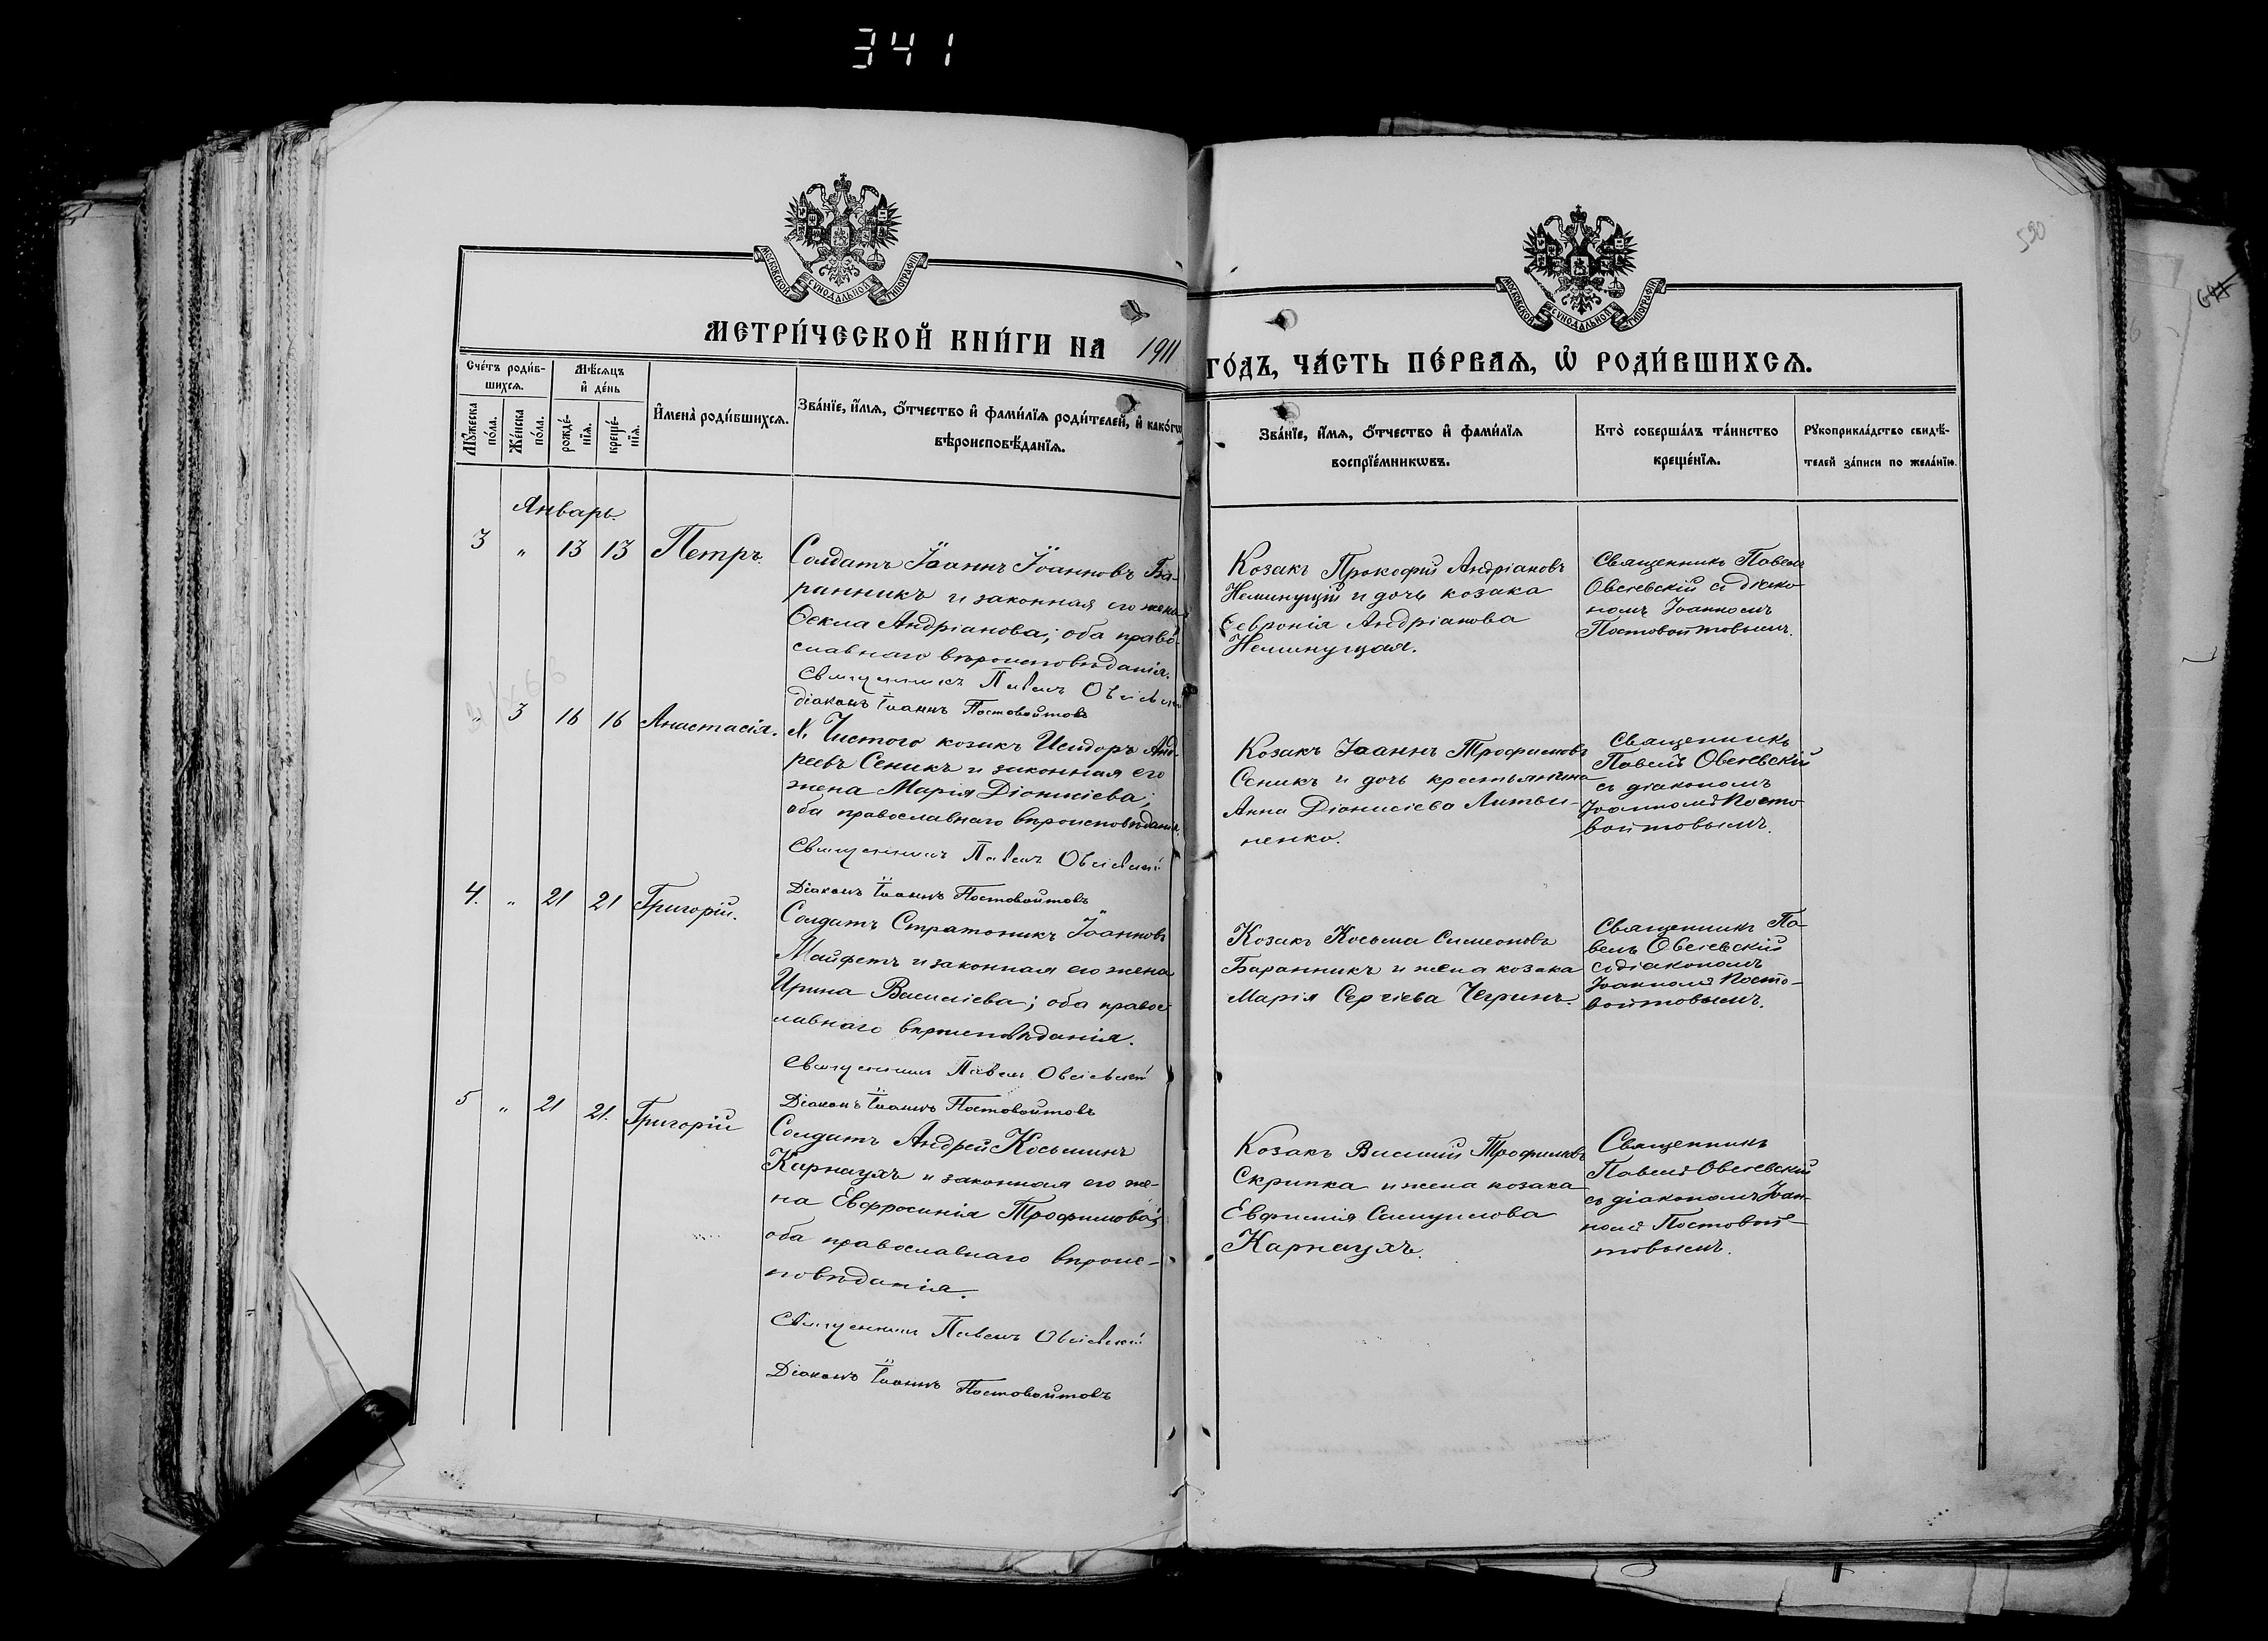 341
590
МОСКОВСКОЙ СѴНОДАЛЬНОЙ ТИПОГРАФІИ
МОСКОВСКОЙ СѴНОДАЛЬНОЙ ТИПОГРАФІИ
МЕТРИ́ЧЕСКОЙ КНИ́ГИ НА 1911 ГО́ДЪ, ЧА́СТЬ ПЕ́РВАѦ, Ѽ РОДИ́ВШИХСѦ.
Сче́тъ роди́в-
шихсѧ.
Мѣ́сѧцъ
и҆ де́нь
Мꙋ́жеска
по́ла.
Же́нска
по́ла.
рожде́-
нїѧ.
креще́-
нїѧ.
И҆мена̀ роди́вшихсѧ.
Зва́нїе, и҆́мѧ, ѻ҆́тчество и҆ фами́лїѧ роди́телей, и҆ како́гѡ
вѣроисповѣ́данїѧ.
Зва́нїе, и҆́мѧ, ѻ҆́тчество и҆ фами́лїѧ
воспрїе́мникѡвъ.
Кто̀ соверша́лъ та́инство
креще́нїѧ.
Рꙋкоприкла́дство свидѣ́-
телей за́писи по жела́нїю.
Январь.
3 " 13 13 Петръ.
Солдатъ Іоаннъ Іоанновъ Ба-
ранникъ и законная его жена
Ѳекла Андріанова; оба право-
славнаго вѣроисповѣданія.
Священникъ Павелъ Овсіевскій
Діаконъ Іоаннъ Постовойтовъ
Козакъ Прокофій Андріановъ
Неминущій и дочь козака
Ѳевронія Андріанова
Неминущая.
Священникъ Павелъ
Овсіевскій съ діако-
номъ Іоанномъ
Постовойтовымъ.
" 3 16 16 Анастасія.
Чистого козакъ Исидоръ Анд-
реевъ Сеникъ и законная его
жена Марія Діонисіева;
оба православнаго вѣроисповѣданія.
Священникъ Павелъ Овсіевскій
Діаконъ Іоаннъ Постовойтовъ
Козакъ Іоаннъ Трофимовъ
Сеникъ и дочь крестьянина
Анна Діонисіева Литви-
ненко.
Священникъ
Павелъ Овсіевскій
съ діакономъ
Іоанномъ Посто-
войтовымъ.
4. " 21 21 Григорій.
Солдатъ Стратоникъ Іоанновъ
Майфетъ и законная его жена
Ирина Василіева; оба правос-
лавнаго вѣроисповѣданія.
Священникъ Павелъ Овсіевскій
Діаконъ Іоаннъ Постовойтовъ
Козакъ Косьма Симеоновъ
Баранникъ и жена козака
Марія Сергіева Чегринъ.
Священникъ Па-
велъ Овсіевскій
съ діакономъ
Іоанномъ Посто-
войтовымъ.
5 " 21 21. Григорій
Солдатъ Андрей Косьминъ
Карнаухъ и законная его же-
на Евфросинія Трофимова;
оба православнаго вѣроис-
повѣданія.
Священникъ Павелъ Овсіевскій
Діаконъ Іоаннъ Постовойтовъ
Козакъ Василій Трофимовъ
Скрипка и жена козака
Евфимія Самуилова
Карнаухъ.
Священникъ
Павелъ Овсіевскій
съ діакономъ Іоан-
номъ Постовой-
товымъ.